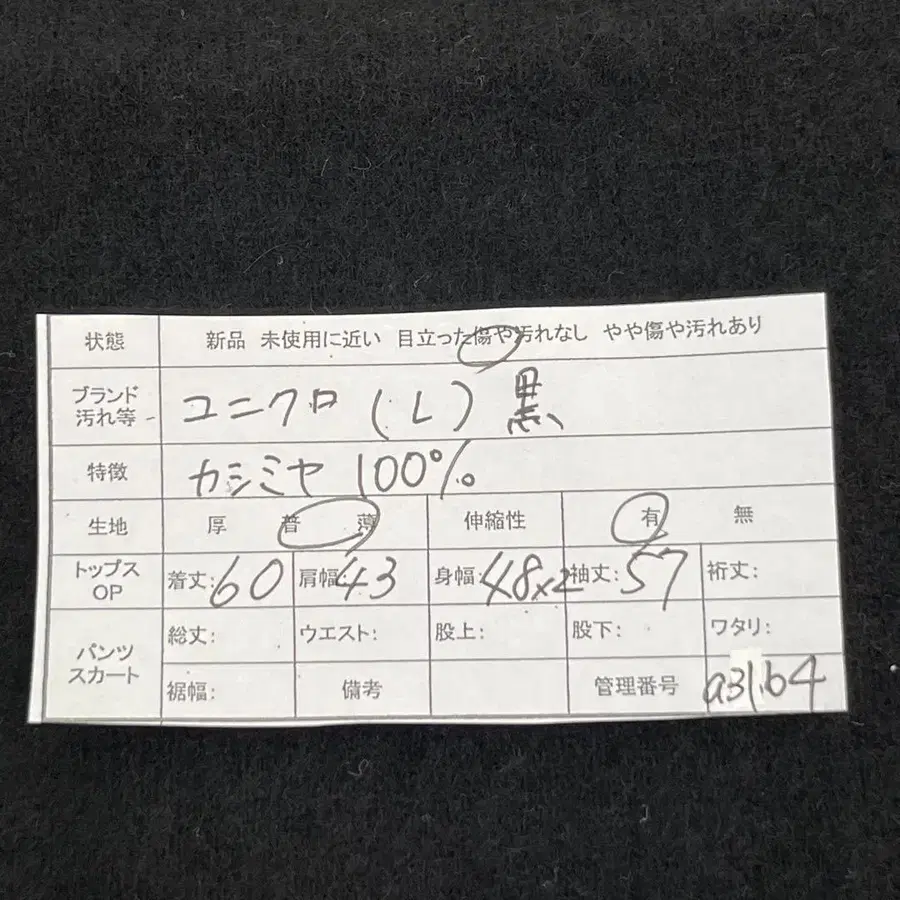 状態 新品 未使用に近い 目立った傷や汚れなし やや傷や汚れあり
ブランド
汚れ等 ユニクロ (L) 黒
特徴 カシミヤ 100%
生地 厚 普 薄 伸縮性 有 無
トップス
OP 着丈:60 肩幅:43 身幅:48x2 袖丈:57 裄丈:
パンツ
スカート 総丈: ウエスト: 股上: 股下: ワタリ:
裾幅: 備考 管理番号 a3164